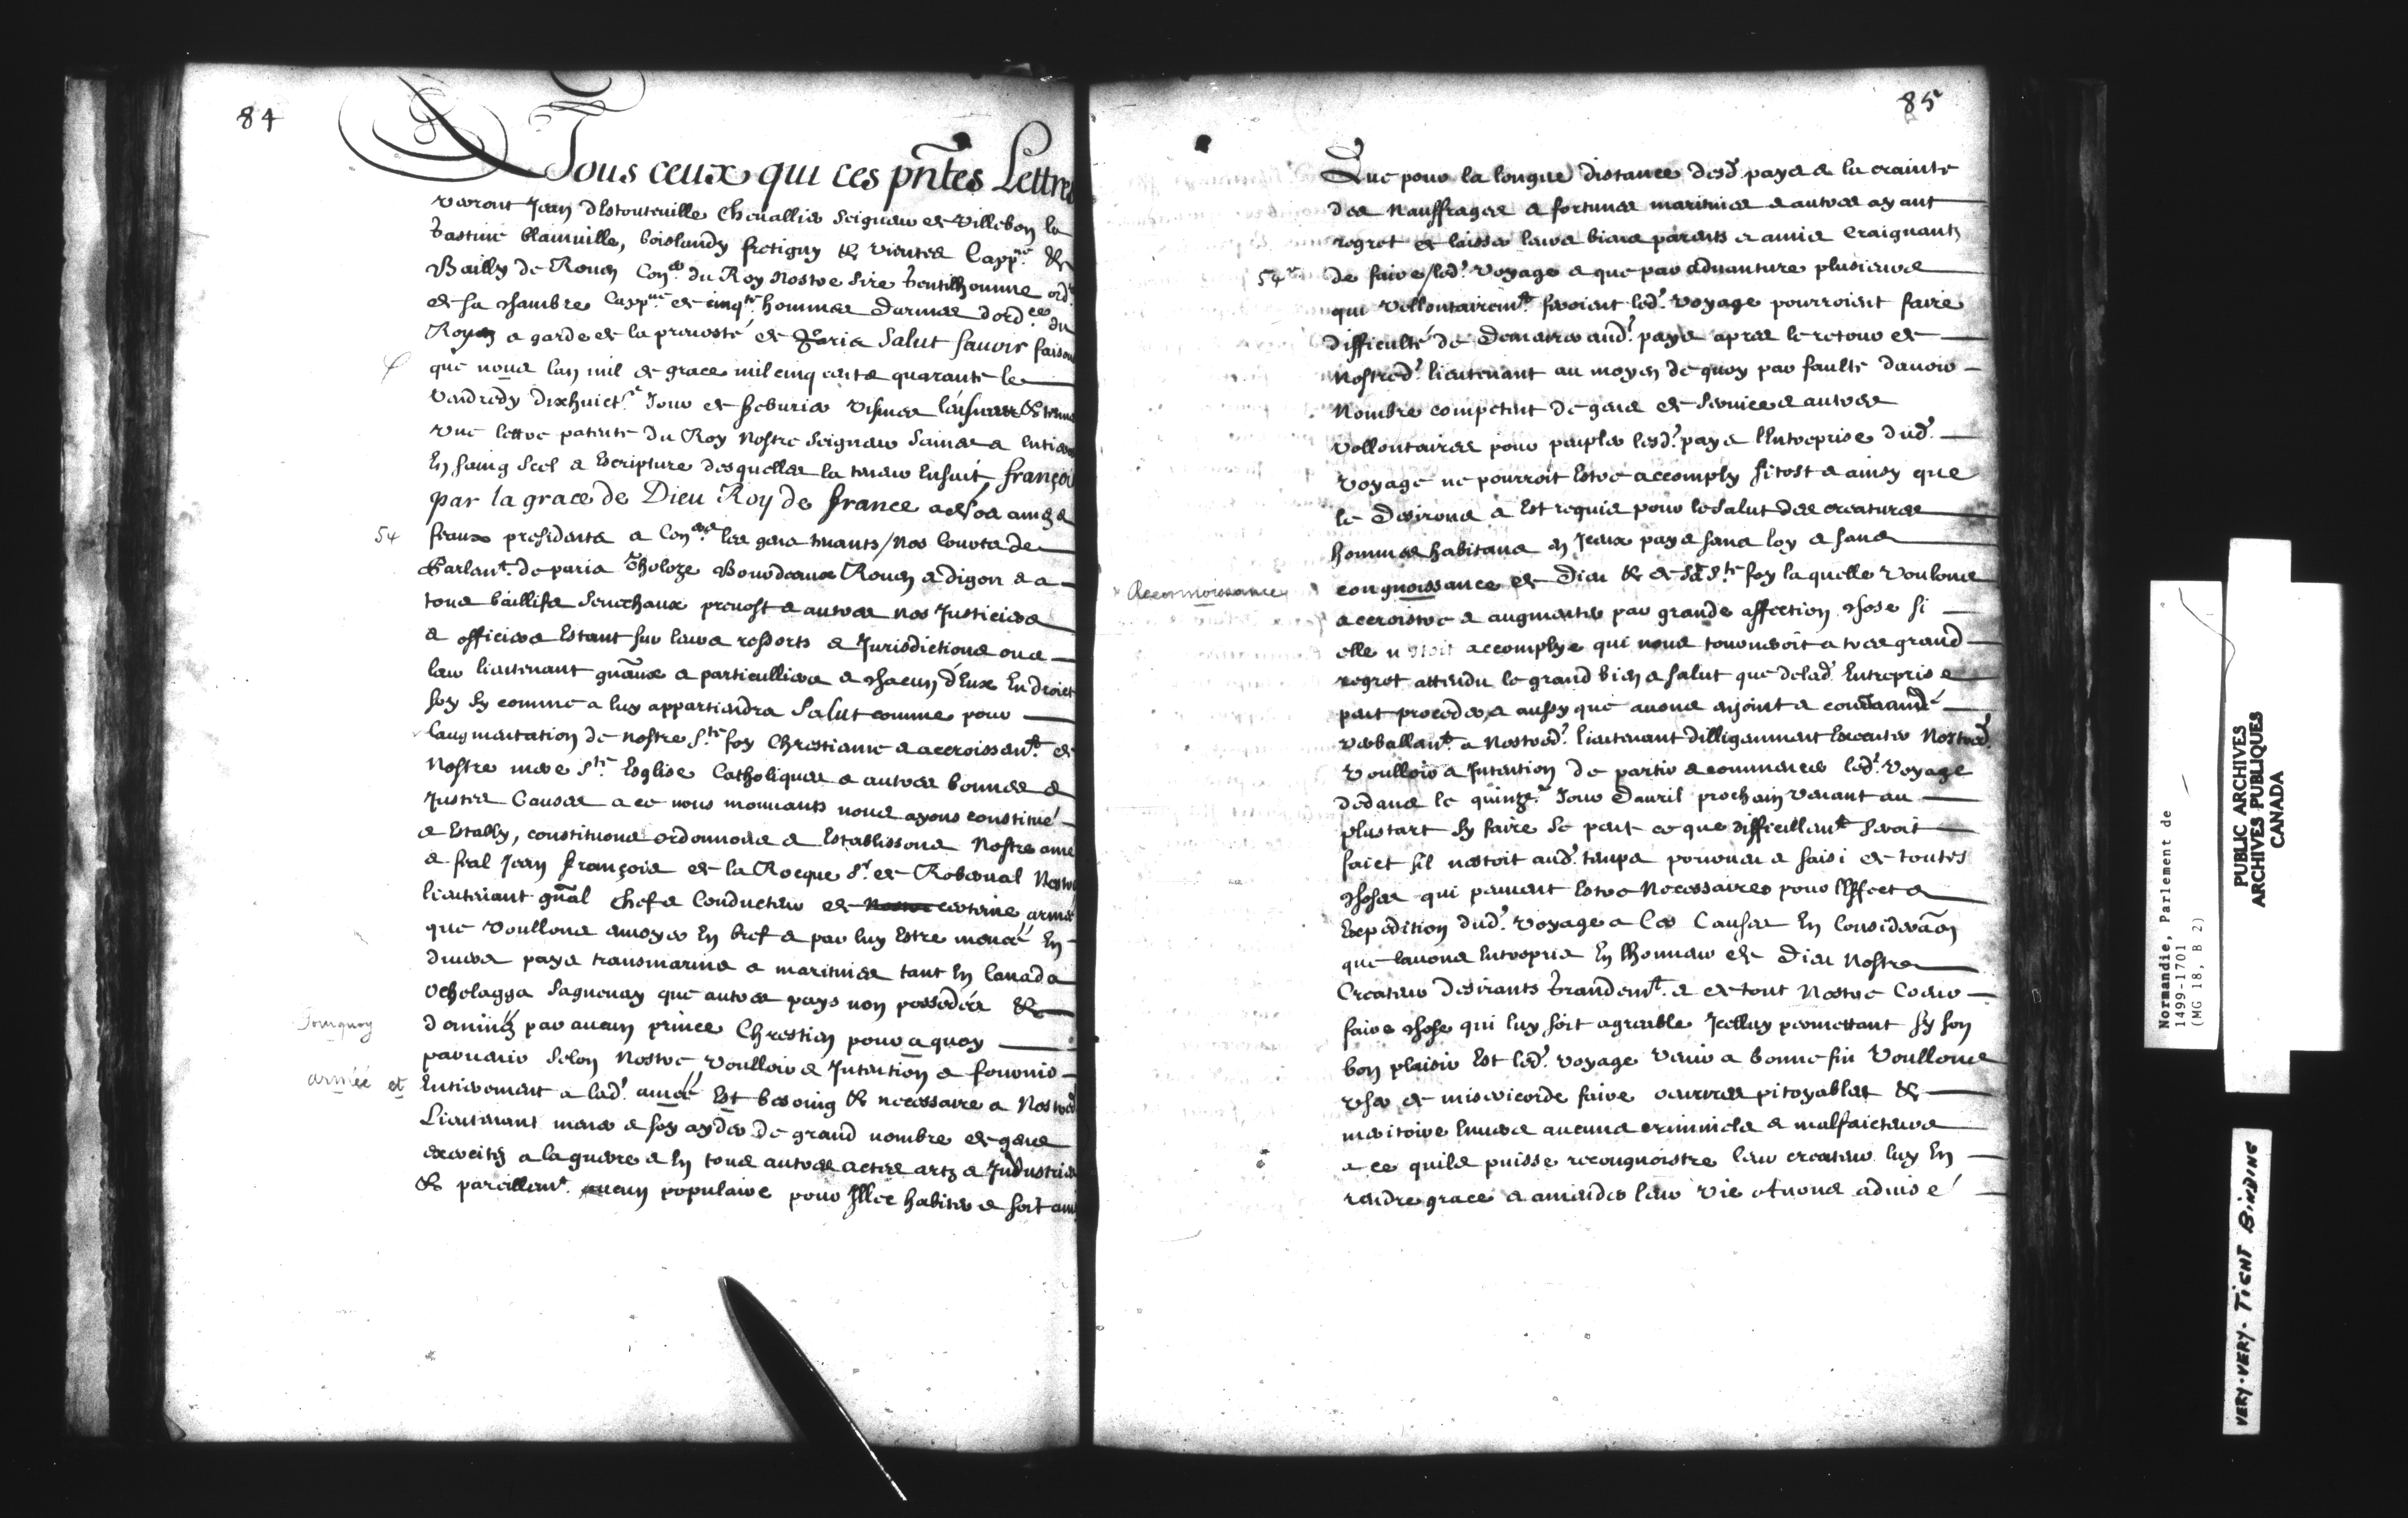 84
A Tous ceux qui ces pntes Lettres
verront Jean dEstouteville Chevallier Seigneur de Villebon la
Gastine blainville, boislandy fretigny & vientes Cappne &
Bailly de Rouen Coner du Roy Nostre Sire Gentilhomme ordre
de sa chambre Cappne de cinqte hommes darmes dordces du
Roy a garde de la prevosté de Paris Salut savoir faisons
que nous lan mil de grace mil cinq cents quarante le
Vendredy dixhuicte Jour de feburier vismes
une lettre patente du Roy Nostre Seigneur Saines & entieres
En saing Scel & Escripture desquelles la teneur Ensuit françois
par la grace de Dieu Roy de france a nos amez &
54
feaux presidents & Coners les gens tenants / Nos Courts de
Parlant. de paris Tholoze Bourdeaux Rouen & digon & a
tous baillifs Senechaux prevost & autres nos Justiciers
& officiers Estant sur leurs ressorts & Jurisdictions ou a
leur lieutenant gnaux & particulliers & chacun dEux En droict
soy sy comme a luy appartiendra Salut comme pour
laugmentation de nostre Ste foy Chrestienne & accroissent. de
Nostre mere Ste Esglise Catholiques & autres bonnes &
Justes Causes a ce nous mouvants nous ayons constitué
& Estably, constituons ordonnons & Establissons Nostre ame
& feal Jean françois de la Rocque Sr. de Roberval Nostre
lieutenant gnal Chef & Conducteur de certaine armée
que voullons envoyer En bref & par luy Estre menée En
divers pays transmarins & maritimes tant En Canada
Ochelagga Saguenay que autres pays non possedés &
Pourquoy
dominéz par aucun prince Chrestien pour a quoy
parvenir Selon Nostre voulloir & Intention & fournir
armée et
Entierement a lad. armée Est besoing & necessaire a Nostred.
Lieutenant mener & soy ayder de grand nombre de gens
exercités a la guerre & En tous autres actes artz & Industries
& pareillemt. aucun populaire pour Illec habiter & soit
85
Que pour la longue distance desd. pays & la crainte
des Nauffrages & fortunes maritimes & autres ayant
regret de laisser leurs biens parents & amis Craignants
54v
de faire / led. voyage & que par advanture plusieurs
qui vollontairemt. feroient led. voyage pourroient faire
difficulté de Demeurer aud. pays apres le retour de
Nostred. lieutenant au moyen de quoy par faulte davoir
Nombre competent de gens de Service & autres
vollontaires pour peupler lesd. pays lEntreprise dud.
voyage ne pourroit Estre accomply sitost & ainsy que
le Desirons & Est requis pour le Salut des creatures
hommes habitans en Iceux pays sans loy & sans
Reconnoissance
congnoissance de Dieu & de sa Ste foy laquelle voulons
accroistre & augmenter par grande affection chose si
elle nestoit accomplye qui nous tourneroit a tres grand
regret attendu le grand bien & salut que delad. Entreprise
peut proceder, & aussy que avons enjoint & commandé
verballemt. a Nostred. lieutenant dilligemment Executer Nostred.
voulloir & Intention de partir & commencer led. voyage
dedans le quinze. Jour Davril prochain venant au
plustart sy faire se peut ce que difficillemt seroit
faict sil nestoit aud. temps pourveu & saisi de toutes
choses qui peuvent Estre Necessaires pour lEffect &
Expedition dud. voyage a Ces Causes En Consideraon
que lavons Entrepris En lhonneur de Dieu Nostre
Createur desirants Grandemt. & de tout Nostre Coeur
faire chose qui luy soit agreable Icelluy permettant sy son
bon plaisir Est led. voyage venir a bonne fin Voullons
user de misericorde faire oeuvres pitoyables &
meritoire Envers aucuns criminels & malfaicteurs
a ce quils puisse recongnoistre leur createur luy En
rendre grace & amender leur vie avons advisé
Normandie, Parlement de
1499-1701
(MG 18, B 2)
PUBLIC ARCHIVES
ARCHIVES PUBLIQUES
CANADA
VERY-VERY-TIGHT BINDING